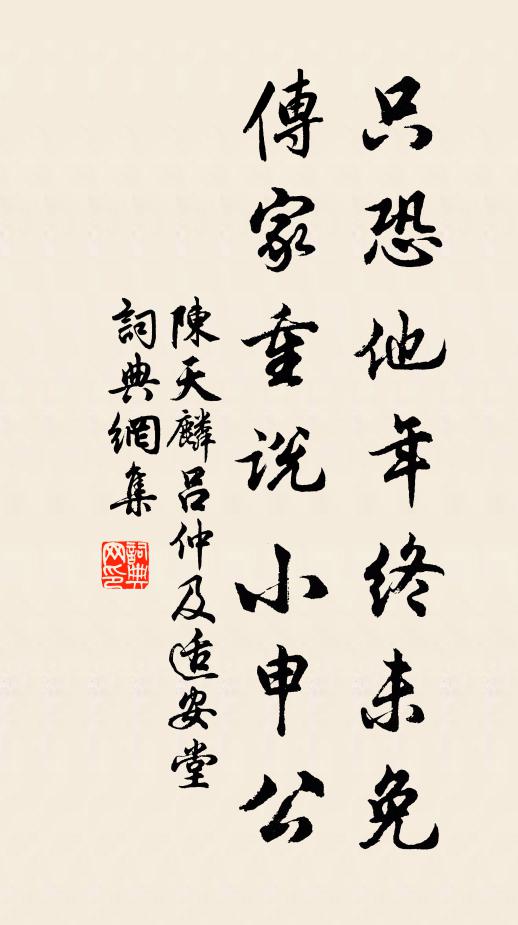 只恐他年終未免
傳家重説小申公
陳天麟吕仲及适安堂
詞典網集
詞典网印